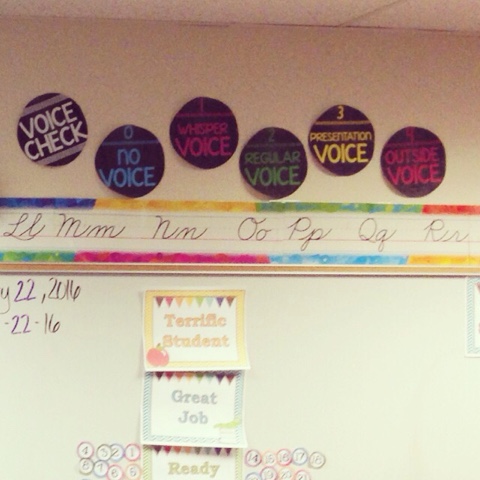 VOICE
CHECK
0
NO
VOICE
1
WHISPER
VOICE
2
REGULAR
VOICE
3
PRESENTATION
VOICE
4
OUTSIDE
VOICE
Ll Mm Nn Oo Pp Qq Rr
y 22, 2016
-22-16
Terrific
Student
Great
Job
Ready